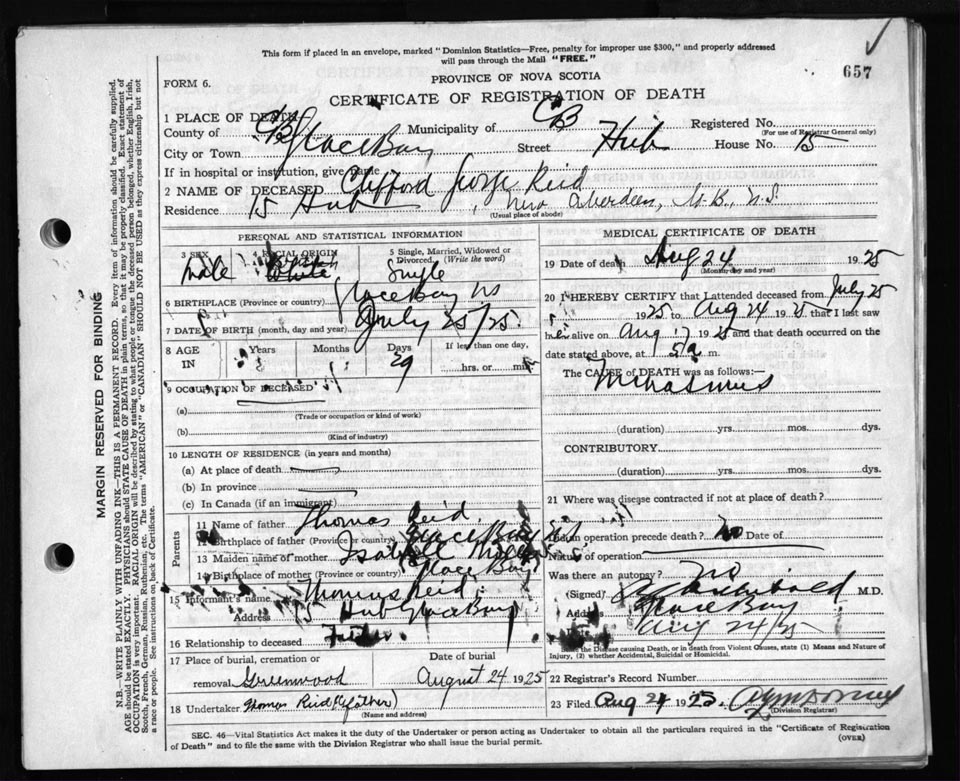 This form if placed in an envelope, marked "Dominion Statistics—Free, penalty for improper use $300," and properly addressed
will pass through the Mail "FREE."
657
FORM 6.
PROVINCE OF NOVA SCOTIA
CERTIFICATE OF REGISTRATION OF DEATH
1 PLACE OF DEATH
County of CB Municipality of CB Registered No.
(For use of Registrar General only)
City or Town Glace Bay Street Hub House No. 15
If in hospital or institution, give name
2 NAME OF DECEASED Clifford George Reid
Residence 15 Hub, New Aberdeen, C.B., N.S.
(Usual place of abode)
PERSONAL AND STATISTICAL INFORMATION
3 SEX 4 RACIAL ORIGIN 5 Single, Married, Widowed or
Divorced. (Write the word)
Male White Single
6 BIRTHPLACE (Province or country) Glace Bay NS
7 DATE OF BIRTH (month, day and year) July 25/25
8 AGE Years Months Days If less than one day,
IN 29 hrs. or min
9 OCCUPATION OF DECEASED
(a)
(Trade or occupation or kind of work)
(b)
(Kind of industry)
10 LENGTH OF RESIDENCE (in years and months)
(a) At place of death
(b) In province
(c) In Canada (if an immigrant)
Parents
11 Name of father Thomas Reid
12 Birthplace of father (Province or country) Glace Bay
13 Maiden name of mother
14 Birthplace of mother (Province or country) Glace Bay
15 Informant's name Thomas Reid
Address 15 Hub Glace Bay
16 Relationship to deceased Father
17 Place of burial, cremation or Date of burial
removal Greenwood August 24 1925
18 Undertaker Thomas Reid (father)
(Name and address)
MEDICAL CERTIFICATE OF DEATH
19 Date of death Aug 24 1925
(Month, day and year)
20 I HEREBY CERTIFY that I attended deceased from July 25
1925 to Aug 24 1925 that I last saw
h alive on Aug 17 1925 and that death occurred on the
date stated above, at 5 a m.
The CAUSE of DEATH was as follows:
(duration) yrs. mos. dys.
CONTRIBUTORY
(duration) yrs. mos. dys.
21 Where was disease contracted if not at place of death?
Did an operation precede death? No Date of
Nature of operation
Was there an autopsy? no
(Signed) M.D.
Address Glace Bay
Date Aug 24/25
State the Disease causing Death, or in death from Violent Causes, state (1) Means and Nature of
Injury, (2) whether Accidental, Suicidal or Homicidal.
22 Registrar's Record Number
23 Filed Aug 24 1925
(Division Registrar)
SEC. 46—Vital Statistics Act makes it the duty of the Undertaker or person acting as Undertaker to obtain all the particulars required in the "Certificate of Registration
of Death" and to file the same with the Division Registrar who shall issue the burial permit. (OVER)
MARGIN RESERVED FOR BINDING
N.B.—WRITE PLAINLY WITH UNFADING INK—THIS IS A PERMANENT RECORD. Every item of information should be carefully supplied.
AGE should be stated EXACTLY. PHYSICIANS should STATE CAUSE OF DEATH in plain terms, so that it may be properly classified. Exact statement of
OCCUPATION is very important. RACIAL ORIGIN will be described by stating to what people or tongue the deceased person belonged, whether English, Irish,
Scotch, French, German, Russian, Ruthenian, etc. The terms "AMERICAN" or "CANADIAN" SHOULD NOT BE USED as they express citizenship but not
a race or people. See instructions on back of Certificate.